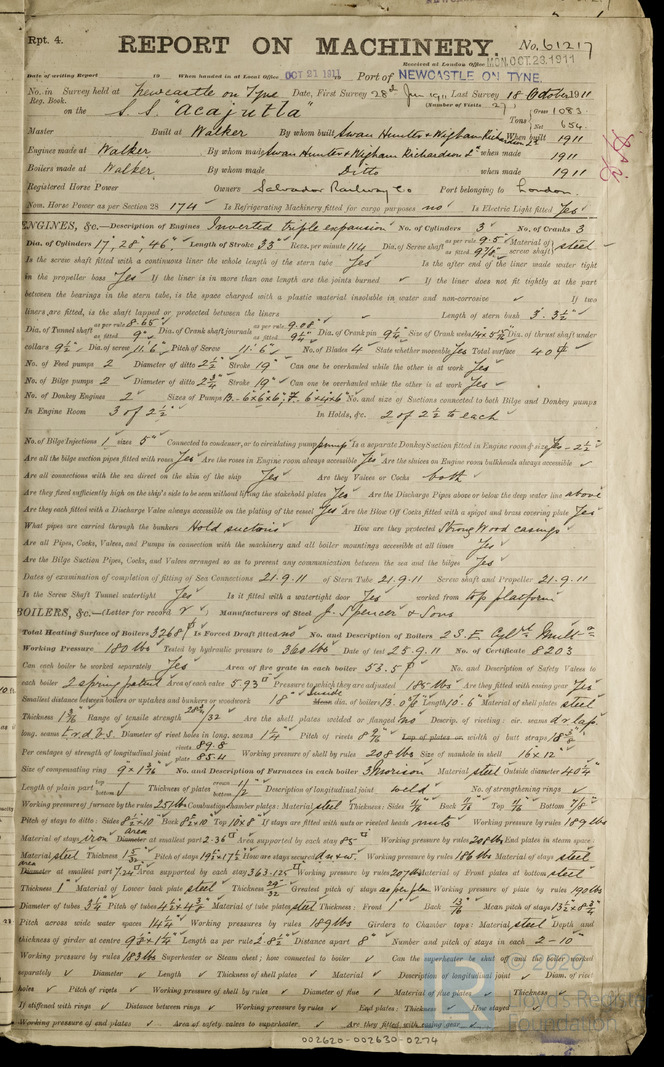 Rpt. 4.
REPORT ON MACHINERY.
No. 61217
Received at London Office MON. OCT. 23. 1911
Date of writing Report 19 When handed in at Local Office OCT 21 1911 Port of NEWCASTLE ON TYNE.
No. in Survey held at Newcastle on Tyne Date, First Survey 28th Last Survey 18 October 1911
Reg. Book. (Number of Visits 27)
on the S.S. "Acajutla" Tons Gross 1083 Net 654
Master Built at Walker By whom built Swan Hunter & Wigham Richardson Ld When built 1911
Engines made at Walker By whom made Swan Hunter & Wigham Richardson Ld when made 1911
Boilers made at Walker By whom made Ditto when made 1911
Registered Horse Power Owners Salvador Railway Co Port belonging to London
Nom. Horse Power as per Section 28 174 Is Refrigerating Machinery fitted for cargo purposes no Is Electric Light fitted Yes
ENGINES, &c.—Description of Engines Inverted triple expansion No. of Cylinders 3 No. of Cranks 3
Dia. of Cylinders 17", 28", 46" Length of Stroke 33" Revs. per minute 114 Dia. of Screw shaft as per rule 9.5 as fitted Material of screw shaft steel
Is the screw shaft fitted with a continuous liner the whole length of the stern tube Yes Is the after end of the liner made water tight
in the propeller boss Yes If the liner is in more than one length are the joints burned If the liner does not fit tightly at the part
between the bearings in the stern tube, is the space charged with a plastic material insoluble in water and non-corrosive If two
liners are fitted, is the shaft lapped or protected between the liners Length of stern bush 3' 3½"
Dia. of Tunnel shaft as per rule 8.65 as fitted 9" Dia. of Crank shaft journals as per rule 9.08 as fitted 9¼" Dia. of Crank pin 9¼" Size of Crank webs Dia. of thrust shaft under
collars 9½" Dia. of screw 11'.6" Pitch of Screw 11'.6" No. of Blades 4 State whether moveable Yes Total surface 40
No. of Feed pumps 2 Diameter of ditto 2½" Stroke 19" Can one be overhauled while the other is at work Yes
No. of Bilge pumps 2 Diameter of ditto 2¾" Stroke 19" Can one be overhauled while the other is at work Yes
No. of Donkey Engines 2 Sizes of Pumps B.-6x6x6; F. 6x4x6 No. and size of Suctions connected to both Bilge and Donkey pumps
In Engine Room 3 of 2½" In Holds, &c. 2 of 2½" to each
No. of Bilge Injections 1 sizes 5" Connected to condenser, or to circulating pump pump Is a separate Donkey Suction fitted in Engine room & size Yes - 2½"
Are all the bilge suction pipes fitted with roses Yes Are the roses in Engine room always accessible Yes Are the sluices on Engine room bulkheads always accessible
Are all connections with the sea direct on the skin of the ship Yes Are they Valves or Cocks both
Are they fixed sufficiently high on the ship's side to be seen without lifting the stokehold plates Yes Are the Discharge Pipes above or below the deep water line above
Are they each fitted with a Discharge Valve always accessible on the plating of the vessel Yes Are the Blow Off Cocks fitted with a spigot and brass covering plate Yes
What pipes are carried through the bunkers Hold suctions How are they protected Strong Wood casings
Are all Pipes, Cocks, Valves, and Pumps in connection with the machinery and all boiler mountings accessible at all times Yes
Are the Bilge Suction Pipes, Cocks, and Valves arranged so as to prevent any communication between the sea and the bilges Yes
Dates of examination of completion of fitting of Sea Connections 21.9.11 of Stern Tube 21.9.11 Screw shaft and Propeller 21.9.11
Is the Screw Shaft Tunnel watertight Yes Is it fitted with a watertight door Yes worked from top platform
BOILERS, &c.—(Letter for record r) Manufacturers of Steel J. Spencer & Sons
Total Heating Surface of Boilers 3268 Is Forced Draft fitted no No. and Description of Boilers 2 S.E. Cyl Mult
Working Pressure 180 lbs Tested by hydraulic pressure to 360 lbs Date of test 25.9.11 No. of Certificate 8203
Can each boiler be worked separately Yes Area of fire grate in each boiler 53.5 No. and Description of Safety Valves to
each boiler 2 spring patent Area of each valve 5.93 Pressure to which they are adjusted 185 lbs Are they fitted with easing gear Yes
Smallest distance between boilers or uptakes and bunkers or woodwork 18" inside dia. of boilers 13.0 Length 10.6 Material of shell plates steel
Thickness Range of tensile strength 28½/32 Are the shell plates welded or flanged no Descrip. of riveting: cir. seams d.r. lap
long. seams t.r.d.b.s. Diameter of rivet holes in long. seams 1¼" Pitch of rivets Lap of plates or width of butt straps
Per centages of strength of longitudinal joint rivets 89.8 plate 85.4 Working pressure of shell by rules 208 lbs Size of manhole in shell 16x12
Size of compensating ring No. and Description of Furnaces in each boiler 3 Morison Material steel Outside diameter 40¼"
Length of plain part top bottom Thickness of plates crown bottom ½ Description of longitudinal joint weld No. of strengthening rings
Working pressure of furnace by the rules 251 lbs Combustion chamber plates: Material steel Thickness: Sides Back Top Bottom 7/8"
Pitch of stays to ditto: Sides Back Top 10x8 If stays are fitted with nuts or riveted heads nuts Working pressure by rules 189 lbs
Material of stays iron area Diameter at smallest part 2.36 Area supported by each stay 85 Working pressure by rules 208 lbs End plates in steam space:
Material steel Thickness 1 5/32 Pitch of stays How are stays secured d.n.&w. Working pressure by rules 186 lbs Material of stays steel
area Diameter at smallest part 7.24 Area supported by each stay 363.125 Working pressure by rules 207 lbs Material of Front plates at bottom steel
Thickness 1" Material of Lower back plate steel Thickness 29/32 Greatest pitch of stays as per plan Working pressure of plate by rules 190 lbs
Diameter of tubes 3¼ Pitch of tubes Material of tube plates steel Thickness: Front 1" Back 13/16 Mean pitch of stays
Pitch across wide water spaces 14¼" Working pressures by rules 189 lbs Girders to Chamber tops: Material steel Depth and
thickness of girder at centre Length as per rule 2.8½ Distance apart 8" Number and pitch of stays in each 2 - 10"
Working pressure by rules 183 lbs Superheater or Steam chest; how connected to boiler Can the superheater be shut off and the boiler worked
separately Diameter Length Thickness of shell plates Material Description of longitudinal joint Diam. of rivet
holes Pitch of rivets Working pressure of shell by rules Diameter of flue Material of flue plates Thickness
If stiffened with rings Distance between rings Working pressure by rules End plates: Thickness How stayed
Working pressure of end plates Area of safety valves to superheater Are they fitted with easing gear
© 2020
Lloyd's Register
Foundation
002620-002630-0274